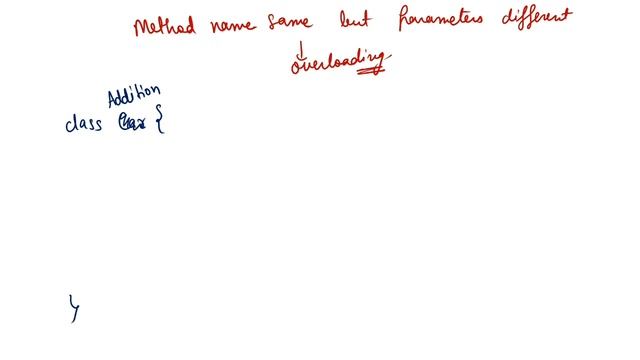 Method name same but parameters different
overloading
Addition
class {
}